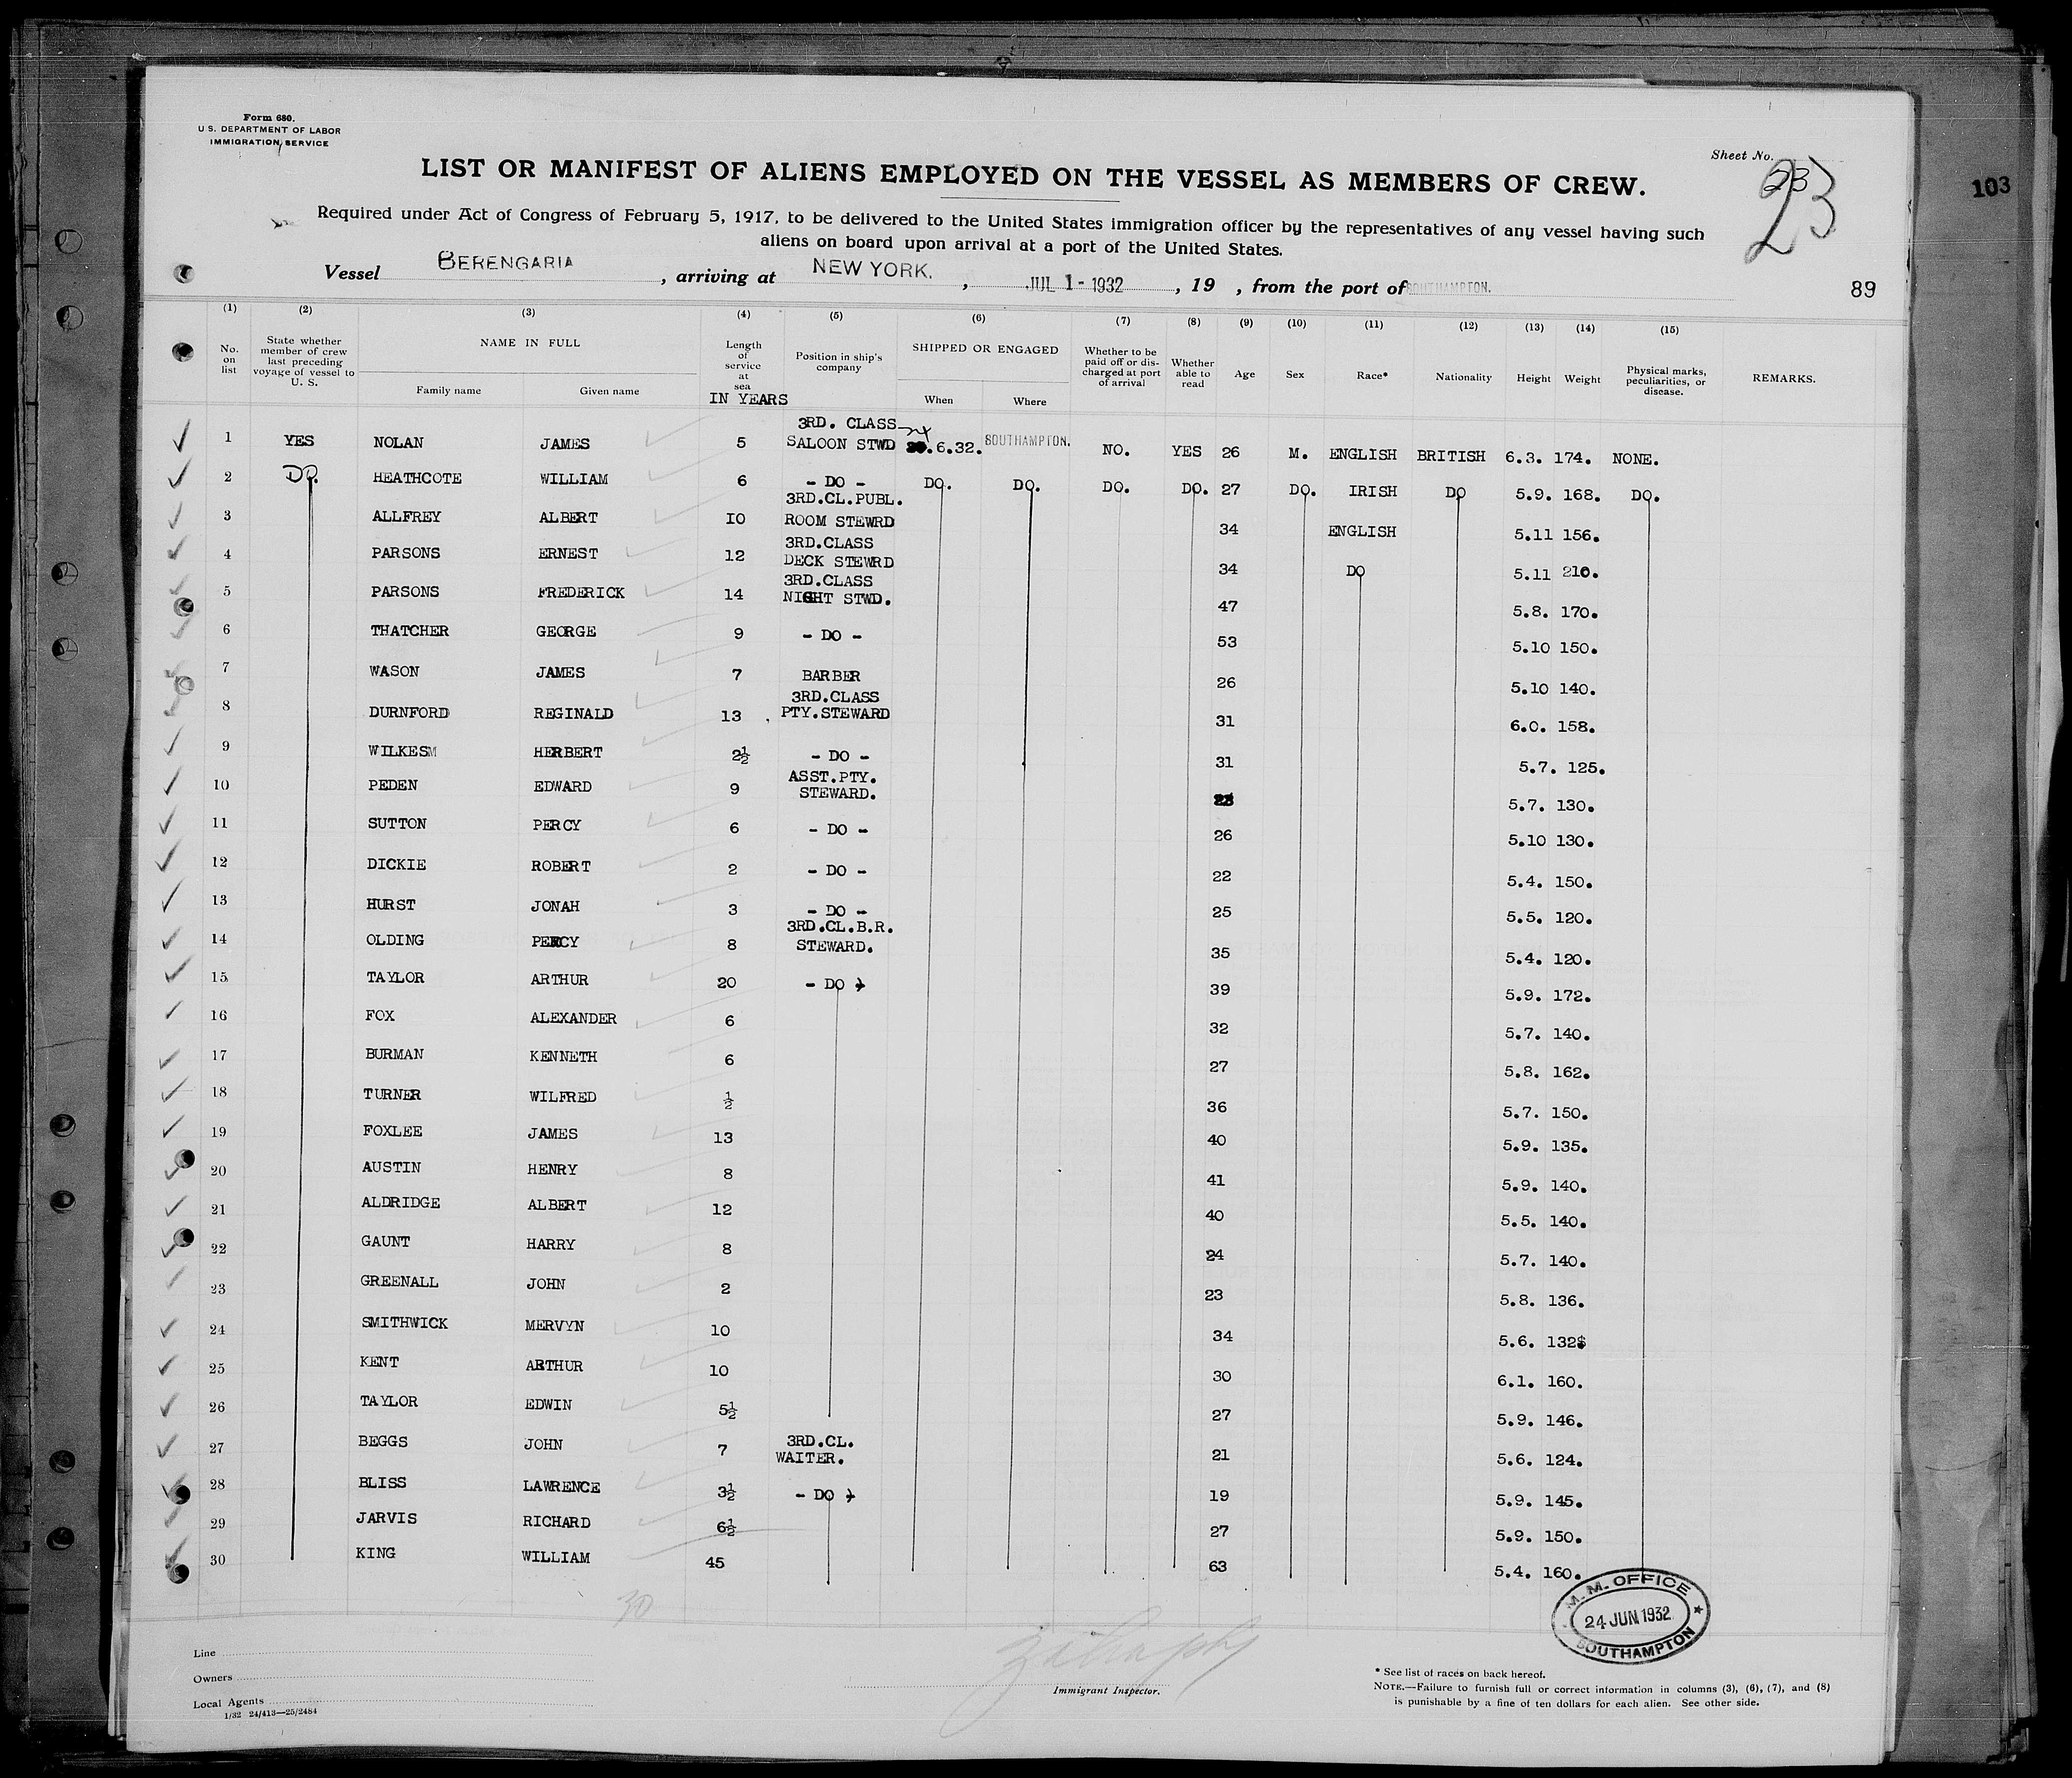 Form 680.
U.S. DEPARTMENT OF LABOR
IMMIGRATION SERVICE
Sheet No. 23
23
103
LIST OR MANIFEST OF ALIENS EMPLOYED ON THE VESSEL AS MEMBERS OF CREW.
Required under Act of Congress of February 5, 1917, to be delivered to the United States immigration officer by the representatives of any vessel having such
aliens on board upon arrival at a port of the United States.
Vessel BERENGARIA, arriving at NEW YORK., JUL 1 - 1932, 19 , from the port of SOUTHAMPTON.
89
(1) (2) (3) (4) (5) (6) (7) (8) (9) (10) (11) (12) (13) (14) (15)
No. on list State whether member of crew last preceding voyage of vessel to U. S. NAME IN FULL Family name Given name Length of service at sea IN YEARS Position in ship's company SHIPPED OR ENGAGED When Where Whether to be paid off or discharged at port of arrival Whether able to read Age Sex Race* Nationality Height Weight Physical marks, peculiarities, or disease. REMARKS.
1 YES NOLAN JAMES 5 3RD. CLASS SALOON STWD .6.32. SOUTHAMPTON. NO. YES 26 M. ENGLISH BRITISH 6.3. 174. NONE.
2 DO. HEATHCOTE WILLIAM 6 - DO - DO. DO. DO. DO. 27 DO. IRISH DO 5.9. 168. DO.
3 ALLFREY ALBERT 10 3RD.CL.PUBL. ROOM STEWRD 34 ENGLISH 5.11 156.
4 PARSONS ERNEST 12 3RD.CLASS DECK STEWRD 34 DO 5.11 210.
5 PARSONS FREDERICK 14 3RD.CLASS NIGHT STWD. 47 5.8. 170.
6 THATCHER GEORGE 9 - DO - 53 5.10 150.
7 WASON JAMES 7 BARBER 26 5.10 140.
8 DURNFORD REGINALD 13 3RD.CLASS PTY.STEWARD 31 6.0. 158.
9 WILKESM HERBERT 2½ - DO - 31 5.7. 125.
10 PEDEN EDWARD 9 ASST.PTY. STEWARD. 5.7. 130.
11 SUTTON PERCY 6 - DO - 26 5.10 130.
12 DICKIE ROBERT 2 - DO - 22 5.4. 150.
13 HURST JONAH 3 - DO - 25 5.5. 120.
14 OLDING PERCY 8 3RD.CL.B.R. STEWARD. 35 5.4. 120.
15 TAYLOR ARTHUR 20 - DO - 39 5.9. 172.
16 FOX ALEXANDER 6 32 5.7. 140.
17 BURMAN KENNETH 6 27 5.8. 162.
18 TURNER WILFRED ½ 36 5.7. 150.
19 FOXLEE JAMES 13 40 5.9. 135.
20 AUSTIN HENRY 8 41 5.9. 140.
21 ALDRIDGE ALBERT 12 40 5.5. 140.
22 GAUNT HARRY 8 24 5.7. 140.
23 GREENALL JOHN 2 23 5.8. 136.
24 SMITHWICK MERVYN 10 34 5.6. 132
25 KENT ARTHUR 10 30 6.1. 160.
26 TAYLOR EDWIN 5½ 27 5.9. 146.
27 BEGGS JOHN 7 3RD.CL. WAITER. 21 5.6. 124.
28 BLISS LAWRENCE 3½ - DO - 19 5.9. 145.
29 JARVIS RICHARD 6½ 27 5.9. 150.
30 KING WILLIAM 45 63 5.4. 160.
30
M.M. OFFICE
24 JUN 1932
SOUTHAMPTON
Line
Owners
Local Agents
1/32 24/413—25/2484
Immigrant Inspector.
* See list of races on back hereof.
NOTE.—Failure to furnish full or correct information in columns (3), (6), (7), and (8)
is punishable by a fine of ten dollars for each alien. See other side.